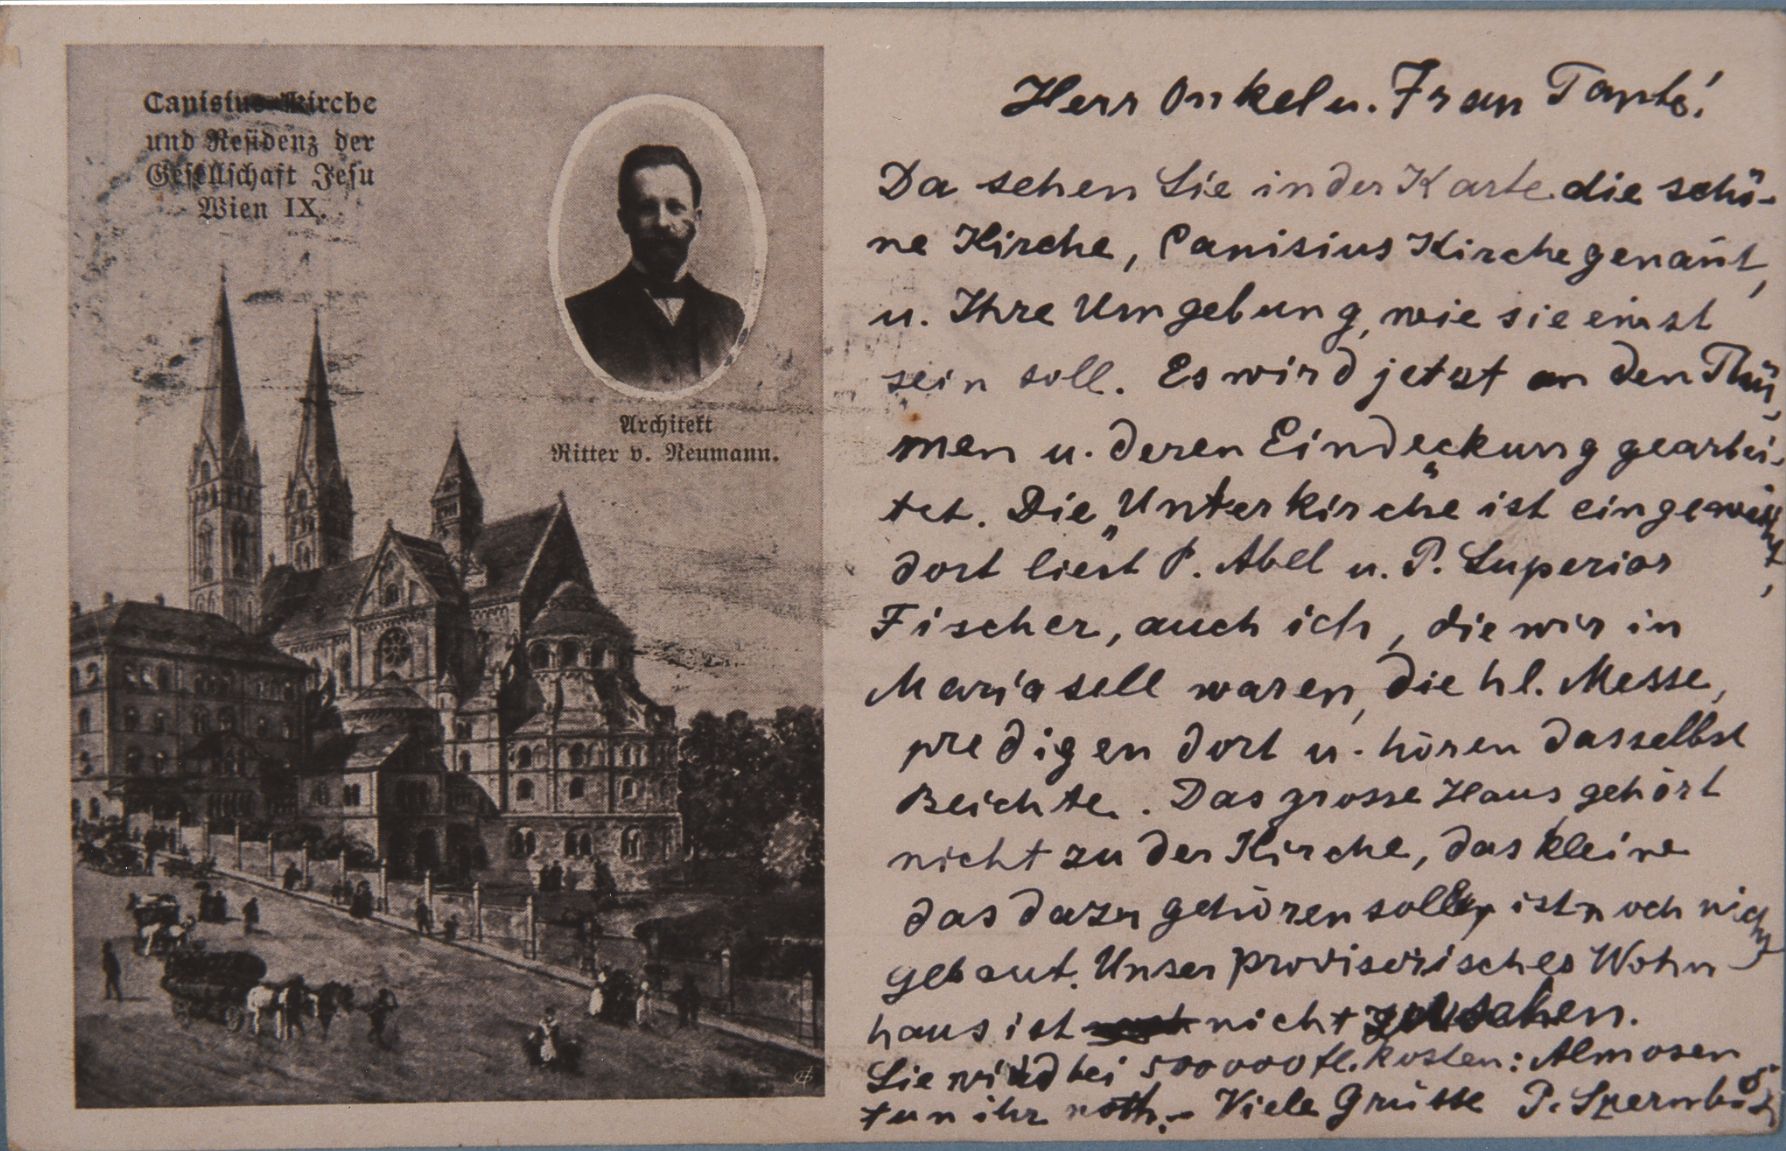 Canisius-Kirche
und Residenz der
Gesellschaft Jesu
Wien IX.
Architekt
Ritter v. Neumann.
Herr Onkel u. Frau Tante!
Da sehen Sie in der Karte die schö-
ne Kirche, Canisius Kirche genañt,
u. Ihre Umgebung, wie sie einst
sein soll. Es wird jetzt an den Thür-
men u. deren Eindeckung gearbei-
tet. Die „Unterkirche" ist eingeweiht,
dort liest P. Abel u. P. Superior
Fischer, auch ich, die wir in
Mariasell waren, die hl. Messe,
predigen dort u. hören dasselbst
Beichte. Das grosse Haus gehört
nicht zu der Kirche, das kleine
das dazu gehören soll, ist noch nicht
gebaut. Unser provisorisches Wohn
haus ist nicht zu sehen.
Sie wird bei 500000 fl. kosten: Almosen
tun ihr noth. – Viele Grüsse P.